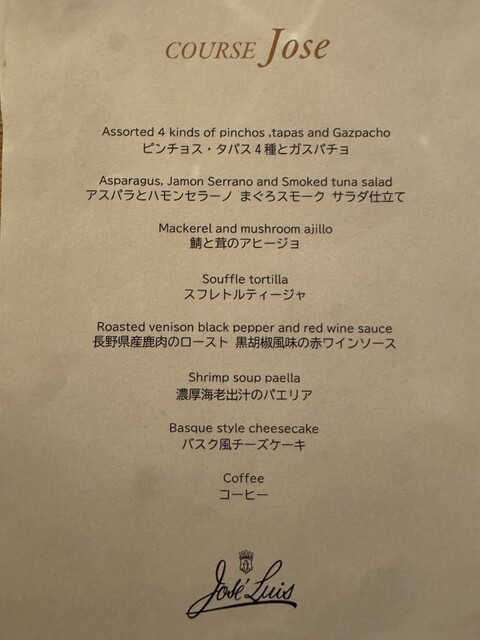 COURSE Jose
Assorted 4 kinds of pinchos ,tapas and Gazpacho
ピンチョス・タパス4種とガスパチョ
Asparagus, Jamon Serrano and Smoked tuna salad
アスパラとハモンセラーノ まぐろスモーク サラダ仕立て
Mackerel and mushroom ajillo
鯖と茸のアヒージョ
Souffle tortilla
スフレトルティージャ
Roasted venison black pepper and red wine sauce
長野県産鹿肉のロースト 黒胡椒風味の赤ワインソース
Shrimp soup paella
濃厚海老出汁のパエリア
Basque style cheesecake
バスク風チーズケーキ
Coffee
コーヒー
José Luis